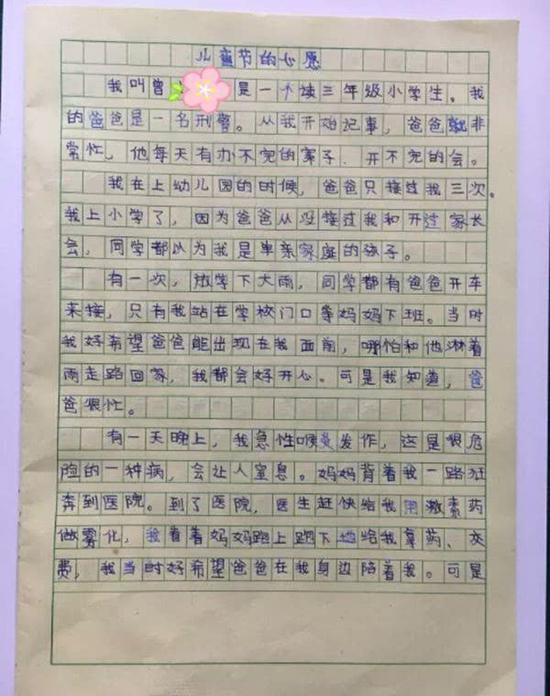 儿童节的心愿
我叫曾 是一个读三年级小学生。我
的爸爸是一名刑警。从我开始记事，爸爸就非
常忙，他每天有办不完的案子．开不完的会。
我在上幼儿园的时候，爸爸只接过我三次。
我上小学了，因为爸爸从没接过我和开过家长
会，同学都以为我是单亲家庭的孩子。
有一次，放学下大雨，同学都有爸爸开车
来接，只有我站在学校门口等妈妈下班。当时
我好希望爸爸能出现在我面前，哪怕和他淋着
雨走路回家，我都会好开心。可是我知道，爸
爸很忙。
有一天晚上，我急性喉炎发作，这是很危
险的一种病，会让人窒息。妈妈背着我一路狂
奔到医院。到了医院，医生赶快给我用激素药
做雾化，我看着妈妈跑上跑下地给我拿药、交
费，我当时好希望爸爸在我身边陪着我。可是